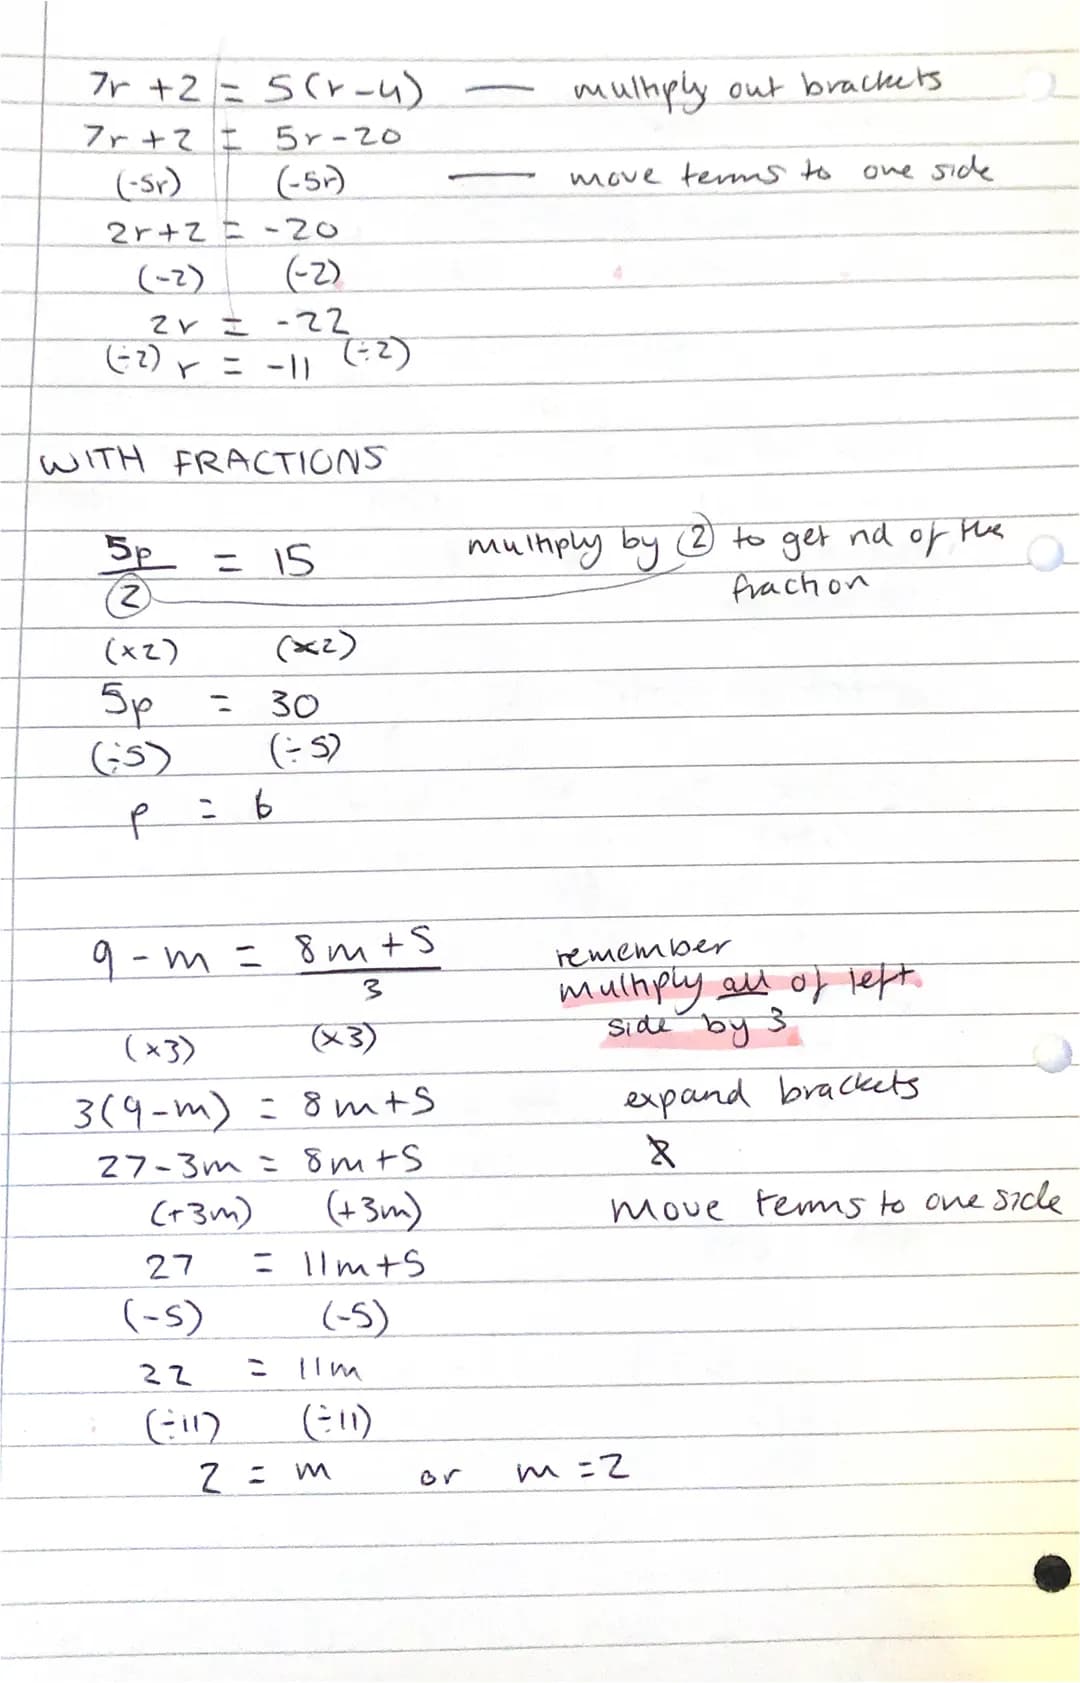 7r + 2 = 5(r-4) — multiply out brackets
7r + 2 = 5r - 20
(-5r) (-5r) — move terms to one side
2r + 2 = -20
(-2) (-2)
2r = -22
(÷2) r = -11 (÷2)
WITH FRACTIONS
5p/2 = 15 multiply by 2 to get rid of the
fraction
(×2) (×2)
5p = 30
(÷5) (÷5)
p = 6
9 - m = 8m + 5 remember
3 multiply all of left
side by 3
(×3) (×3)
3(9-m) = 8m + 5 expand brackets
27 - 3m = 8m + 5 &
(+3m) (+3m) move terms to one side
27 = 11m + 5
(-5) (-5)
22 = 11m
(÷11) (÷11)
2 = m or m = 2